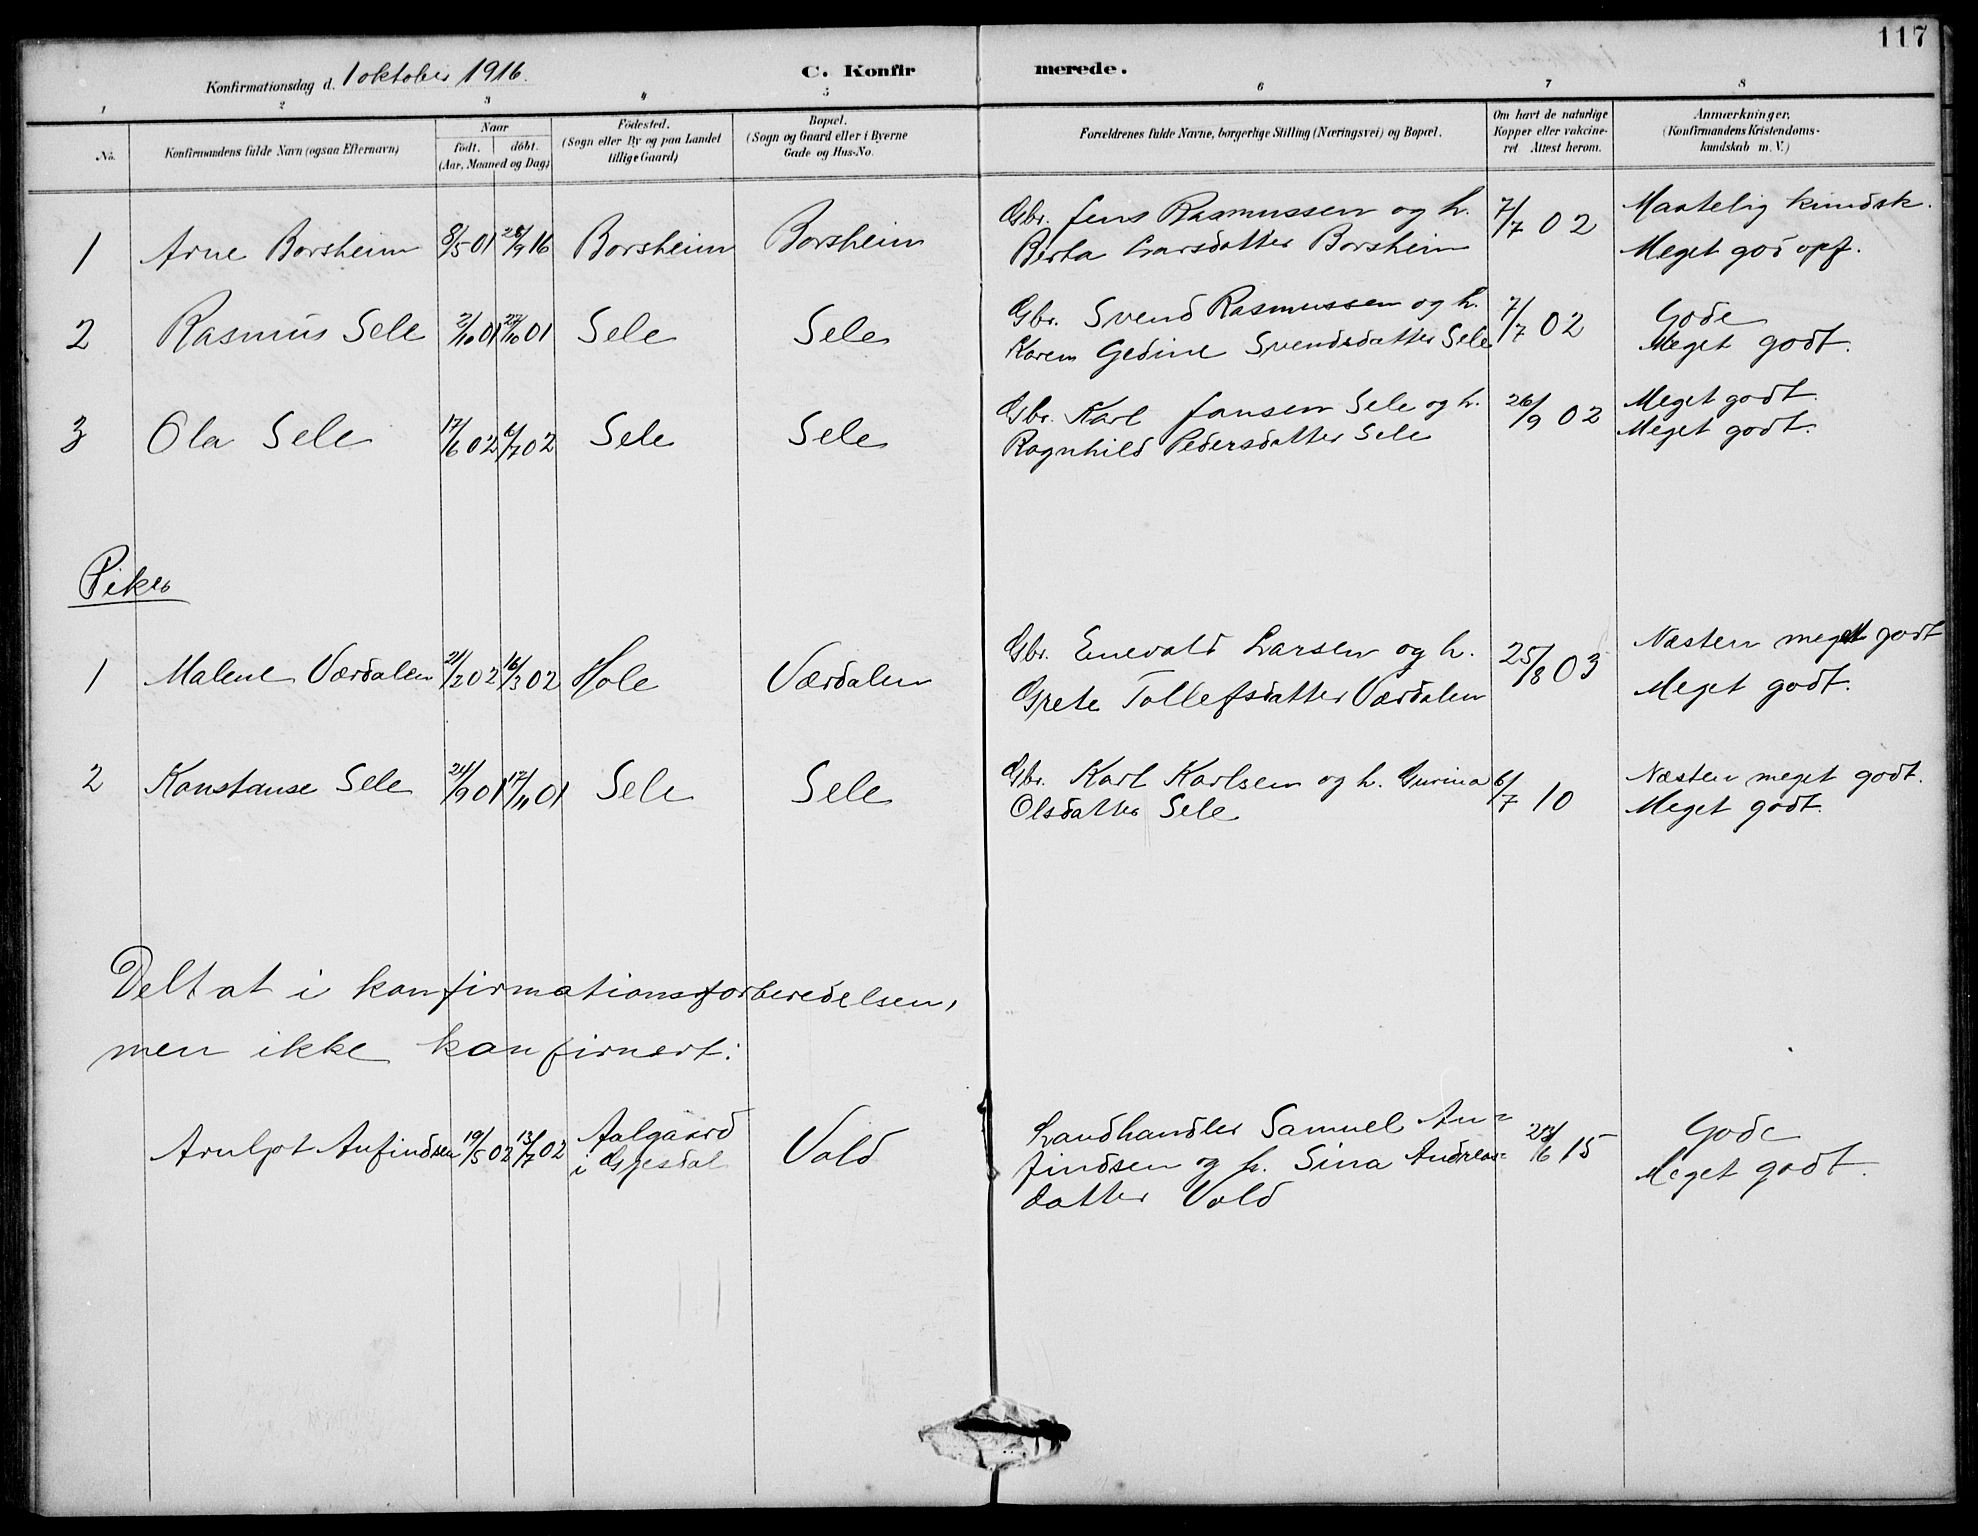 117
Konfirmationsdag d. 1 oktober 1916.
C. Konfirmerede.
1 2 3 4 5 6 7 8
No.
Konfirmandens fulde Navn (ogsaa Efternavn)
Naar
født. døbt.
(Aar, Maaned og Dag)
Fødested.
(Sogn eller By og paa Landet
tillige Gaard)
Bopæl.
(Sogn og Gaard eller i Byerne
Gade og Hus-No.
Forældrenes fulde Navne, borgerlige Stilling (Næringsvei) og Bopæl.
Om havt de naturlige
Kopper eller vakcine-
ret Attest herom.
Anmærkninger,
(Konfirmandens Kristendoms-
kundskab m. V.)
1 Arne Borsheim 8/5 01 28/9 16 Borsheim Borsheim Gbr. Jens Rasmussen og h. 7/7 02 Maatelig kundsk.
Berta Larsdatter Borsheim Meget god opf.
2 Rasmus Sele 2/10 01 27/10 01 Sele Sele Gbr. Svend Rasmussen og h. 7/7 02 Gode
Karen Gedine Svendsdatter Sele Meget godt.
3 Ola Sele 17/6 02 6/7 02 Sele Sele Gbr. Karl Jansen Sele og h. 26/9 02 Meget godt
Ragnhild Pedersdatter Sele Meget godt.
Piker
1 Malene Værdalen 21/2 02 16/3 02 Hole Værdalen Gbr. Enevald Larsen og h. 25/8 03 Næsten meget godt
Grete Tollefsdatter Værdalen Meget godt.
2 Konstanse Sele 24/9 01 17/11 01 Sele Sele Gbr. Karl Karlsen og h. Gurina 6/7 10 Næsten meget godt.
Olsdatter Sele Meget godt.
Deltat i konfirmationsforberedelsen,
men ikke konfirmert:
Arnljot Anfindsen 19/5 02 13/7 02 Aalgaard Vold Landhandler Samuel An= /6 15 Gode
i Gjesdal findsen og h. Sina Andreas= Meget godt.
datter Vold